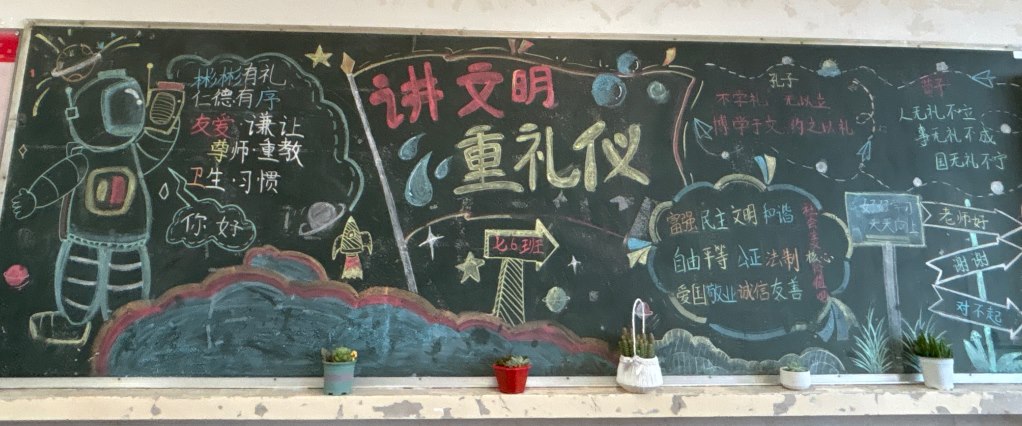 彬彬有礼
仁德有序
友爱·谦让
尊师·重教
卫生·习惯
你好
讲文明
重礼仪
七6班
孔子
不学礼 无以立
博学于文 约之以礼
人无礼不立
事无礼不成
国无礼不宁
富强民主文明和谐
自由平等公正法制
爱国敬业诚信友善
社会主义核心价值观
好好学习
天天向上
老师好
谢谢
对不起